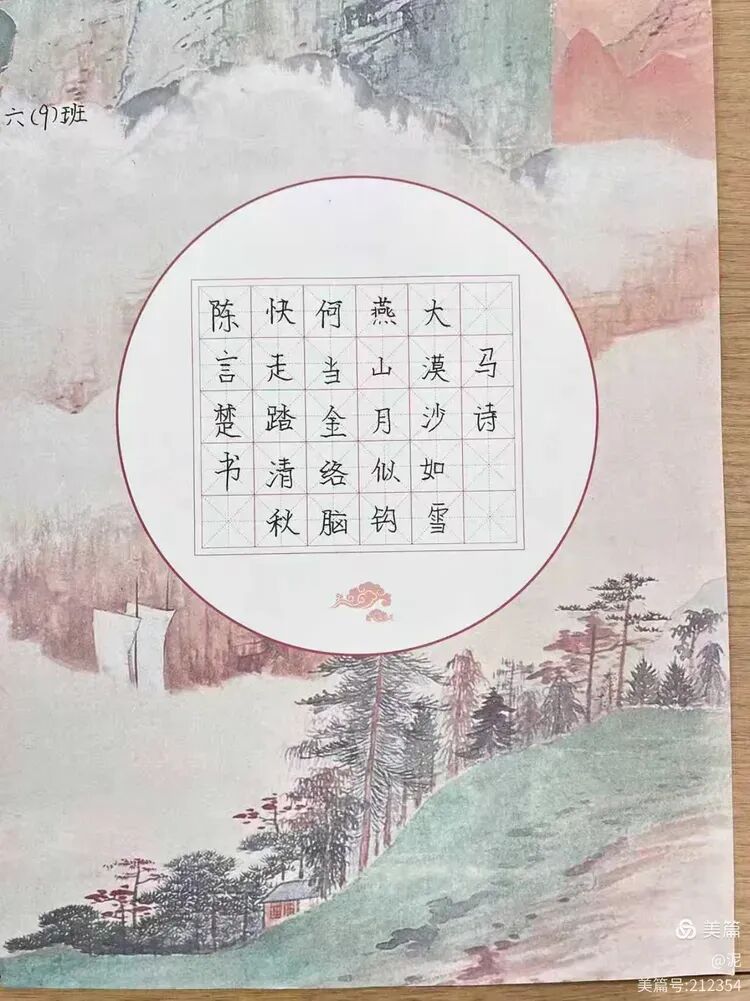 六(9)班
马诗
大漠沙如雪
燕山月似钩
何当金络脑
快走踏清秋
陈言楚书
美篇
@泥
美篇号:212354